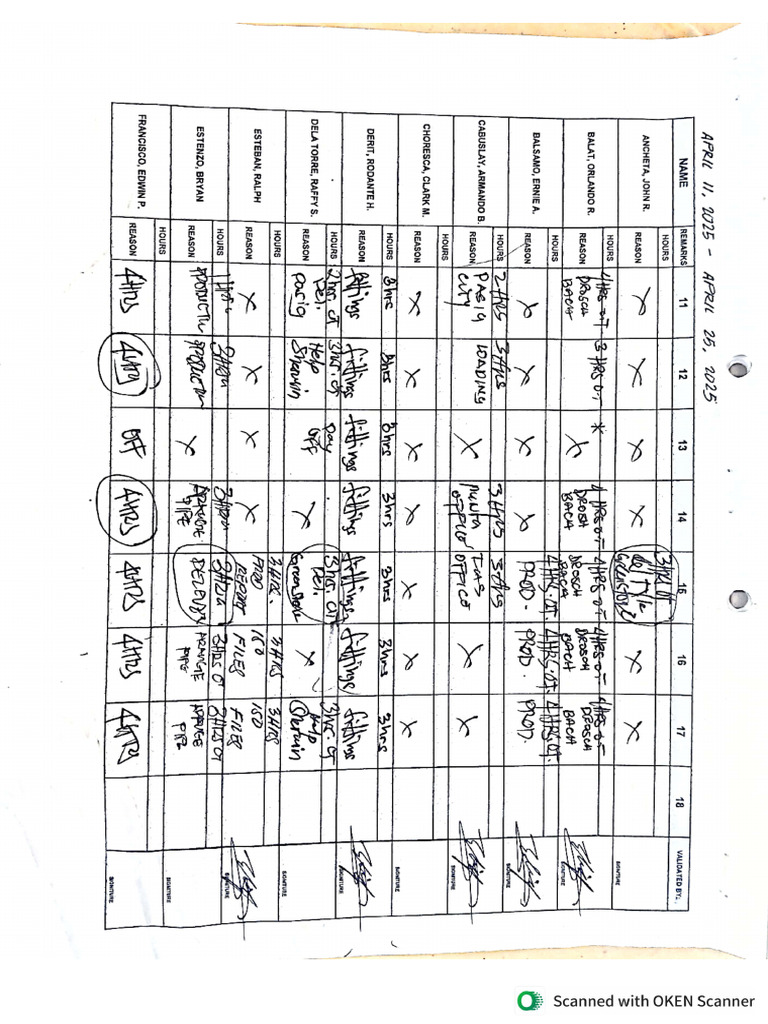 APRIL 11, 2025 - APRIL 25, 2025
NAME REMARKS 11 12 13 14 15 16 17 18 VALIDATED BY:
ANCHETA, JOHN R. HOURS 3 HRS OT
REASON X X X X X X SIGNTURE
BALAT, ORLANDO R. HOURS 4 HRS OT 3 HRS OT * 4 HRS OT 4 HRS OT 4 HRS OT 4 HRS OT
REASON DROSCH BACH X DROSH BACH DROSCH BACH DROSCH BACH DROSCH BACH
BALSAMO, ERNIE A. HOURS 4 HRS. OT. 4 HRS. OT. 4 HRS. OT.
REASON X X X X PROD. PROD. PROD. SIGNTURE
CABUSLAY, ARMANDO B HOURS 2 HRS 3 HRS 3 HRS 3 HRS
REASON PASIG CITY LOADING X OFFICE X X SIGNTURE
CHORESCA, CLARK M. HOURS
REASON X X X X X X X SIGNTURE
DERIT, RODANTE H. HOURS 3hrs 3hrs 3hrs 3hrs 3hrs 3hrs 3hrs
REASON fittings fittings fittings fittings fittings fittings fittings SIGNTURE
DELA TORRE, RAFFY S. HOURS 2hrs. OT 3hrs. OT Day 3hrs. OT 3hrs. OT
REASON Deli. Pasig Help Sherwin OFF X Deli. X Help Sherwin SIGNTURE
ESTEBAN, RALPH HOURS 3 HRS. 3 HRS 3 HRS
REASON X X X X PROD REPORT ISO FILES ISO FILES SIGNTURE
ESTENZO, BRYAN HOURS 3 HRS OT 3 HRS OT
REASON X ARRANGE PIPE ARRANGE PIPE SIGNTURE
FRANCISCO, EDWIN P. HOURS
REASON 4HRS 4HRS OFF 4HRS 4HRS 4HRS 4HRS SIGNTURE
Scanned with OKEN Scanner